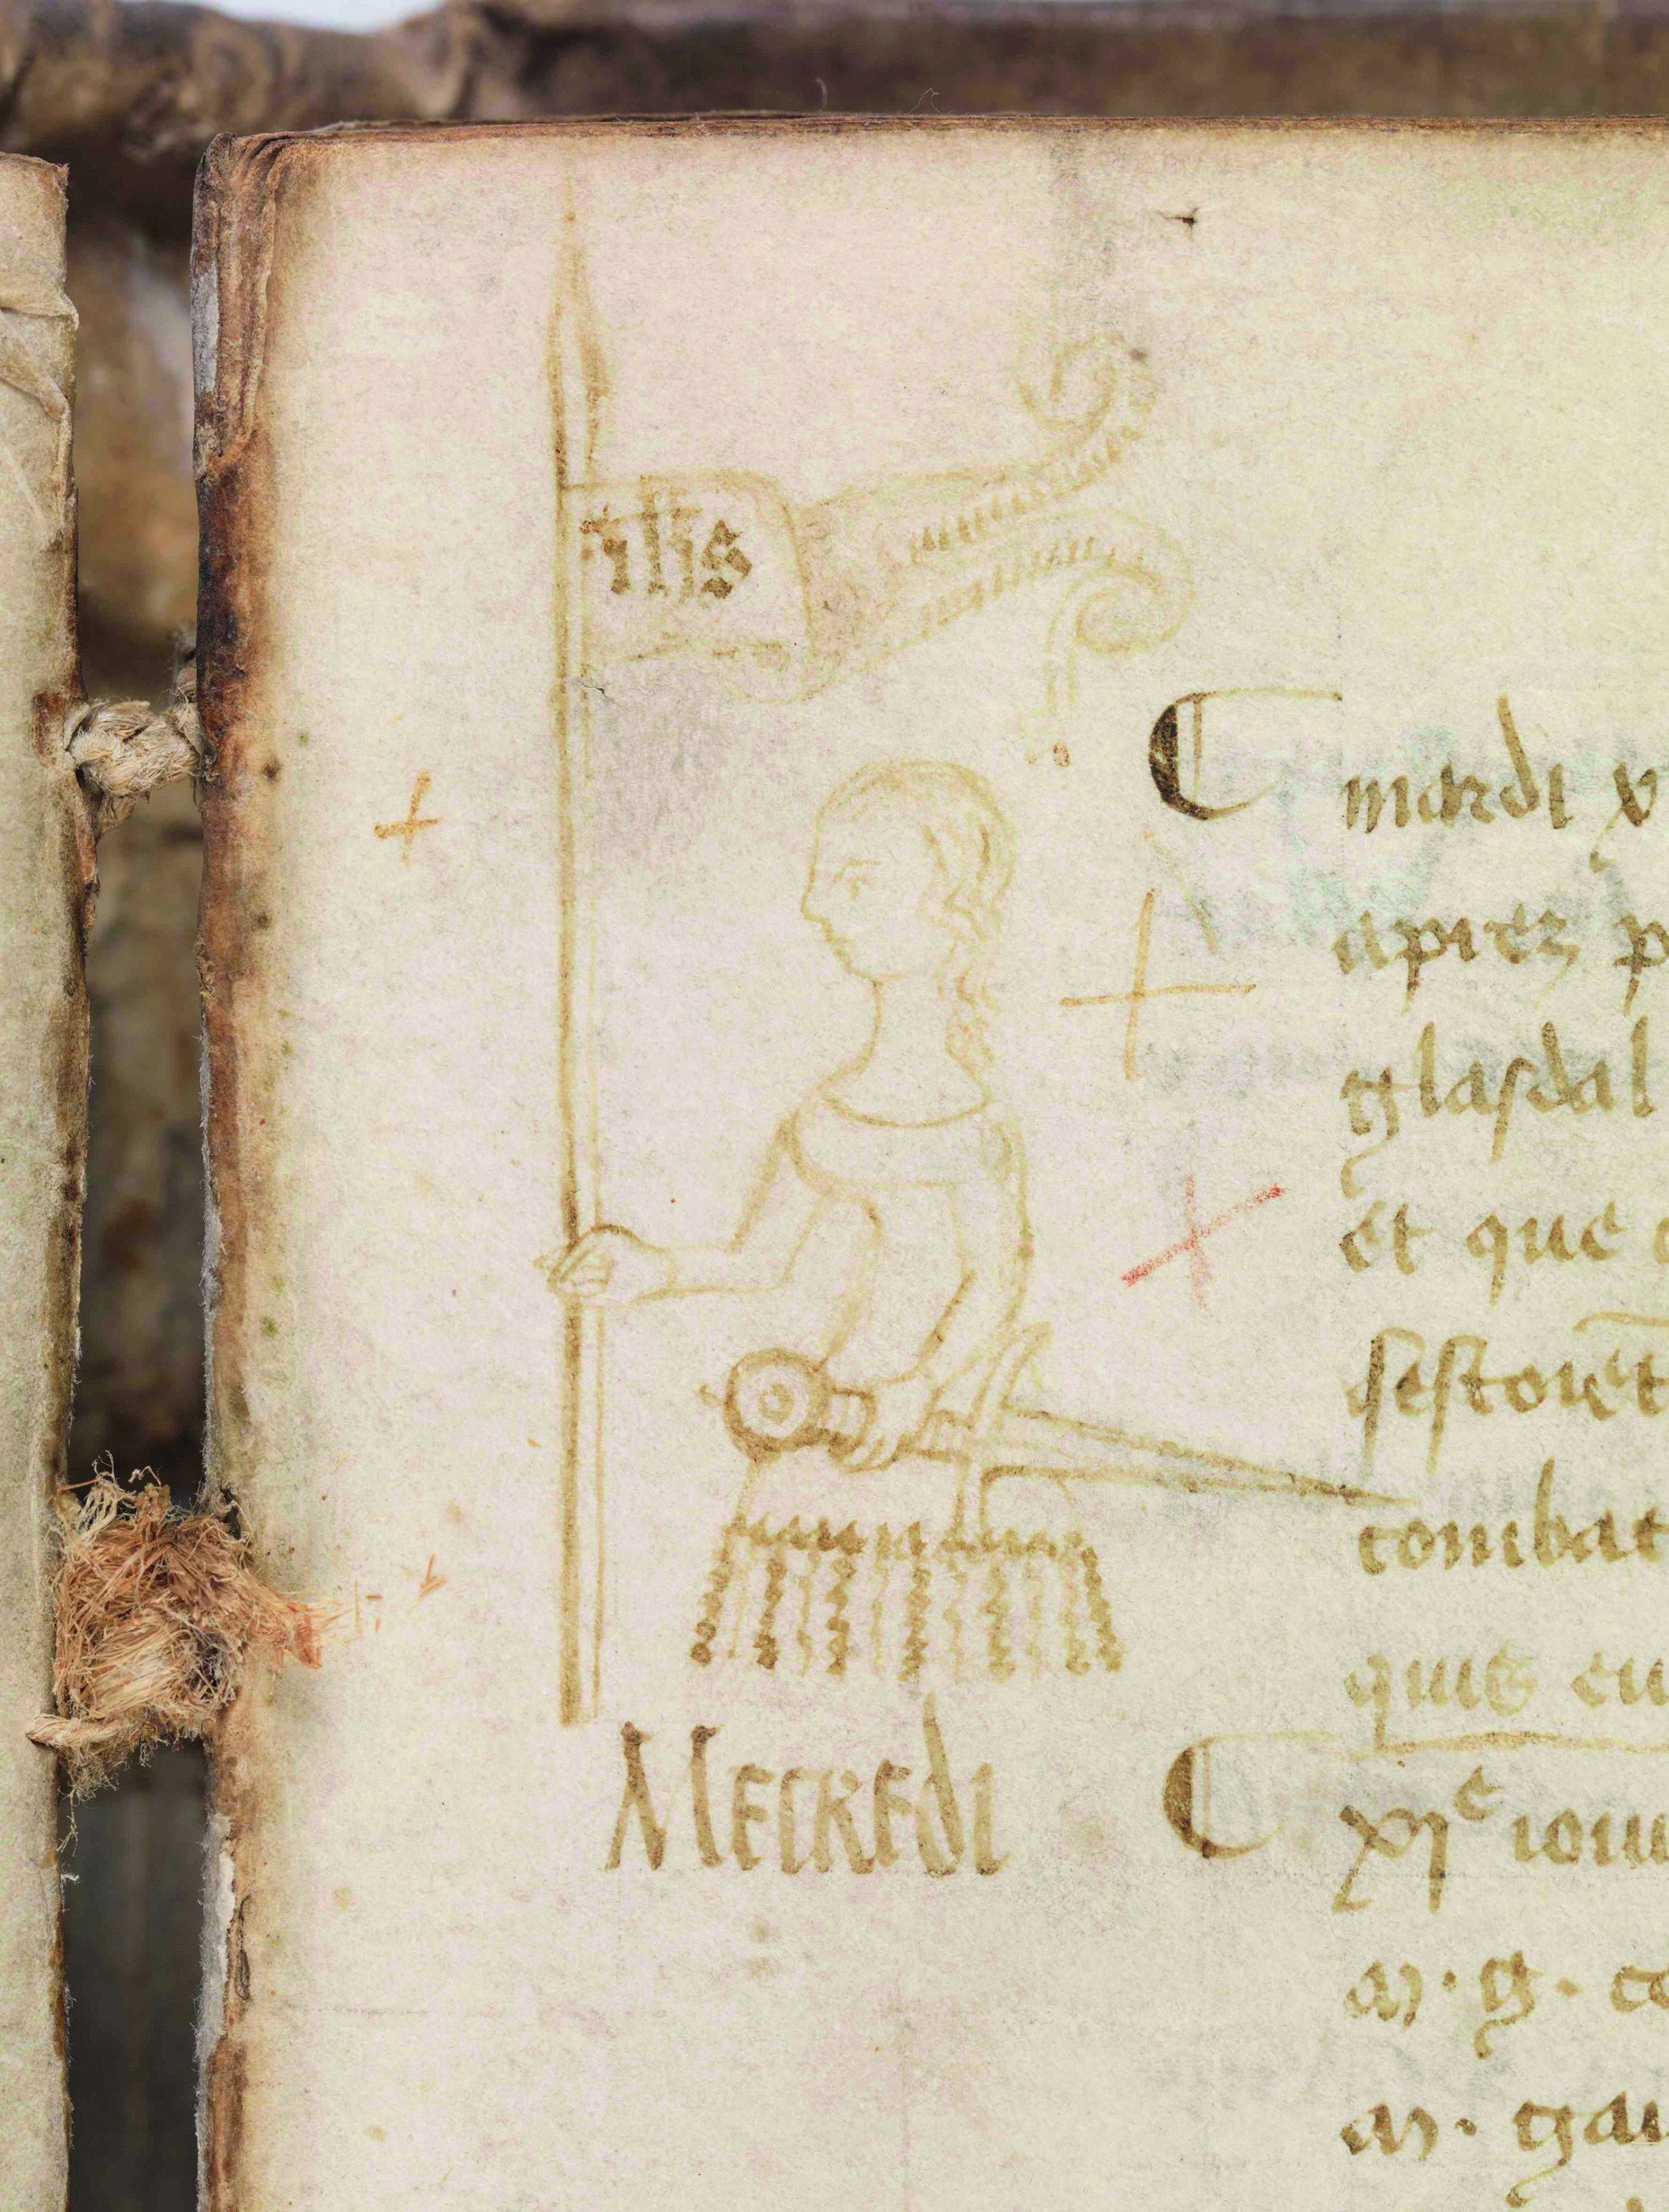 ihs
mardi x
aprez p
glasdal
et que
sestoiēt
combat
quis eu
Mecredi
xıᵉ iou
m. g. co
m. gau